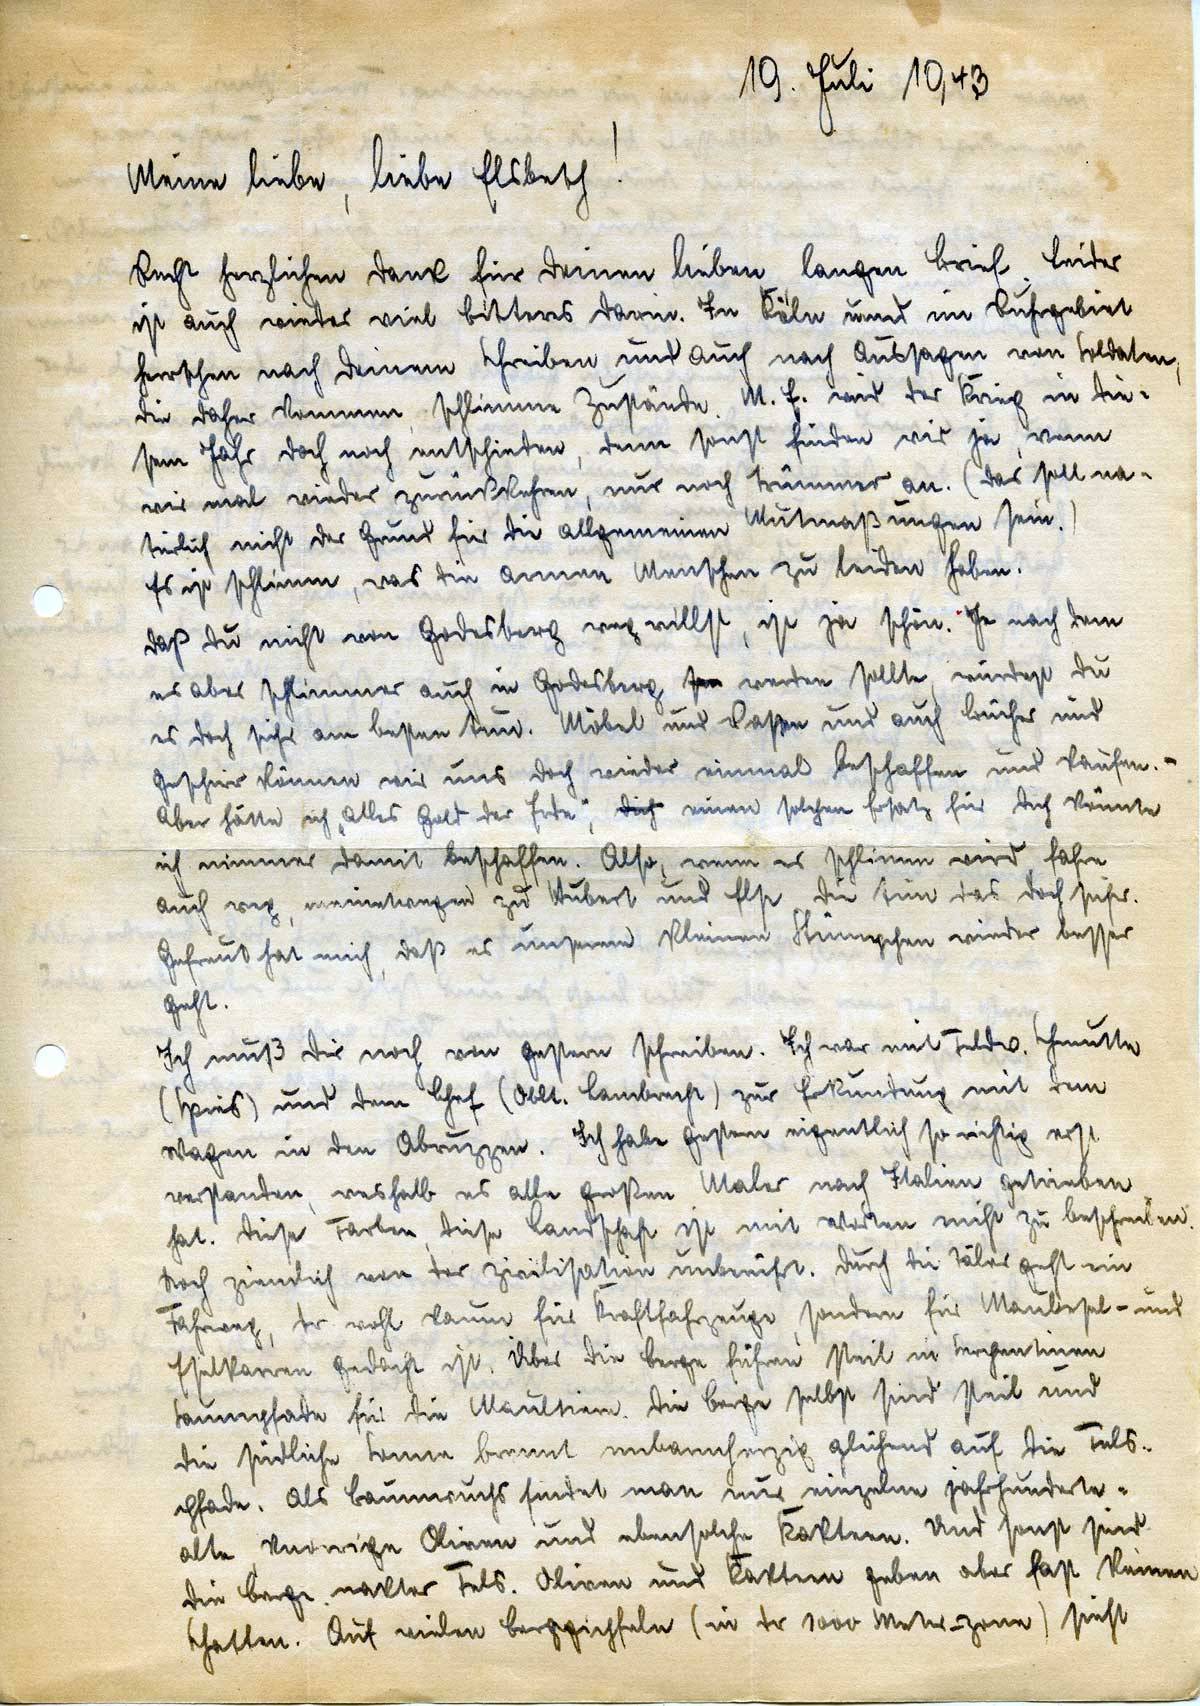 19. Juli 1943
Meine liebe, liebe Elsbeth!
Recht herzlichen Dank für Deinen lieben langen Brief. Leider
ist auch wieder viel bitteres darin. In Köln und im Ruhrgebiet
herrschen nach Deinem Schreiben und auch nach Aussagen von Soldaten,
die daher kommen, schlimme Zustände. M. E. wird der Krieg in die-
sem Jahr doch noch entschieden, denn sonst finden wir ja, wenn
wir mal wieder zurückkehren, nur noch Trümmer an. (Das soll na-
türlich nicht der Grund für die allgemeinen Mutmaßungen sein.)
Es ist schlimm, was die armen Menschen zu leiden haben.
Daß Du nicht von Godesberg weg willst, ist ja schön. Je nach dem
es aber schlimmer auch in Godesberg werden sollte, würdest Du
es doch sicher am besten tun. Möbel und und auch Bücher und
Geschirr können wir uns doch wieder einmal beschaffen und kaufen. -
Aber hätte ich "Alles Gold der Erde", einen solchen Ersatz für Dich könnte
ich nimmer damit beschaffen. Also, wenn es schlimm wird, fahre
auch weg, meinetwegen zu Hubert und Else, die tun das doch sicher.
Gefreut hat mich, daß es unserem kleinen Stümpchen wieder besser
geht.
Ich muß Dir noch von gestern schreiben. Ich war mit Feldw. Schmutte
(Spies) und dem Chef (Oblt. Lambrecht) zur Erkundung mit dem
Wagen in den Abruzzen. Ich habe gestern eigentlich so richtig erst
verstanden, weshalb es alle großen Maler nach Italien getrieben
hat. Diese Farben, diese Landschaft ist mit Worten nicht zu beschreiben.
Noch ziemlich von der Zivilisation unberührt. Durch die Täler geht ein
Fahrweg, der wohl kaum für Kraftfahrzeuge, sondern für Maulesel- und
Eselkarren gedacht ist. Über die Berge führen steil in Serpentinen
Saumpfade für die Maultiere. Die Berge selbst sind steil und
die südliche Sonne brennt unbarmherzig glühend auf die Fels-
pfade. Als Baumwuchs findet man nur einzelne jahrhunderte-
alte, knorrige Oliven und ebensolche Kakteen. Und sonst sind
die Berge nakter Fels. Oliven und Kakteen geben aber fast keinen
Schatten. Auf vielen Berggipfeln (in der 1000 Meter-zone) sieht